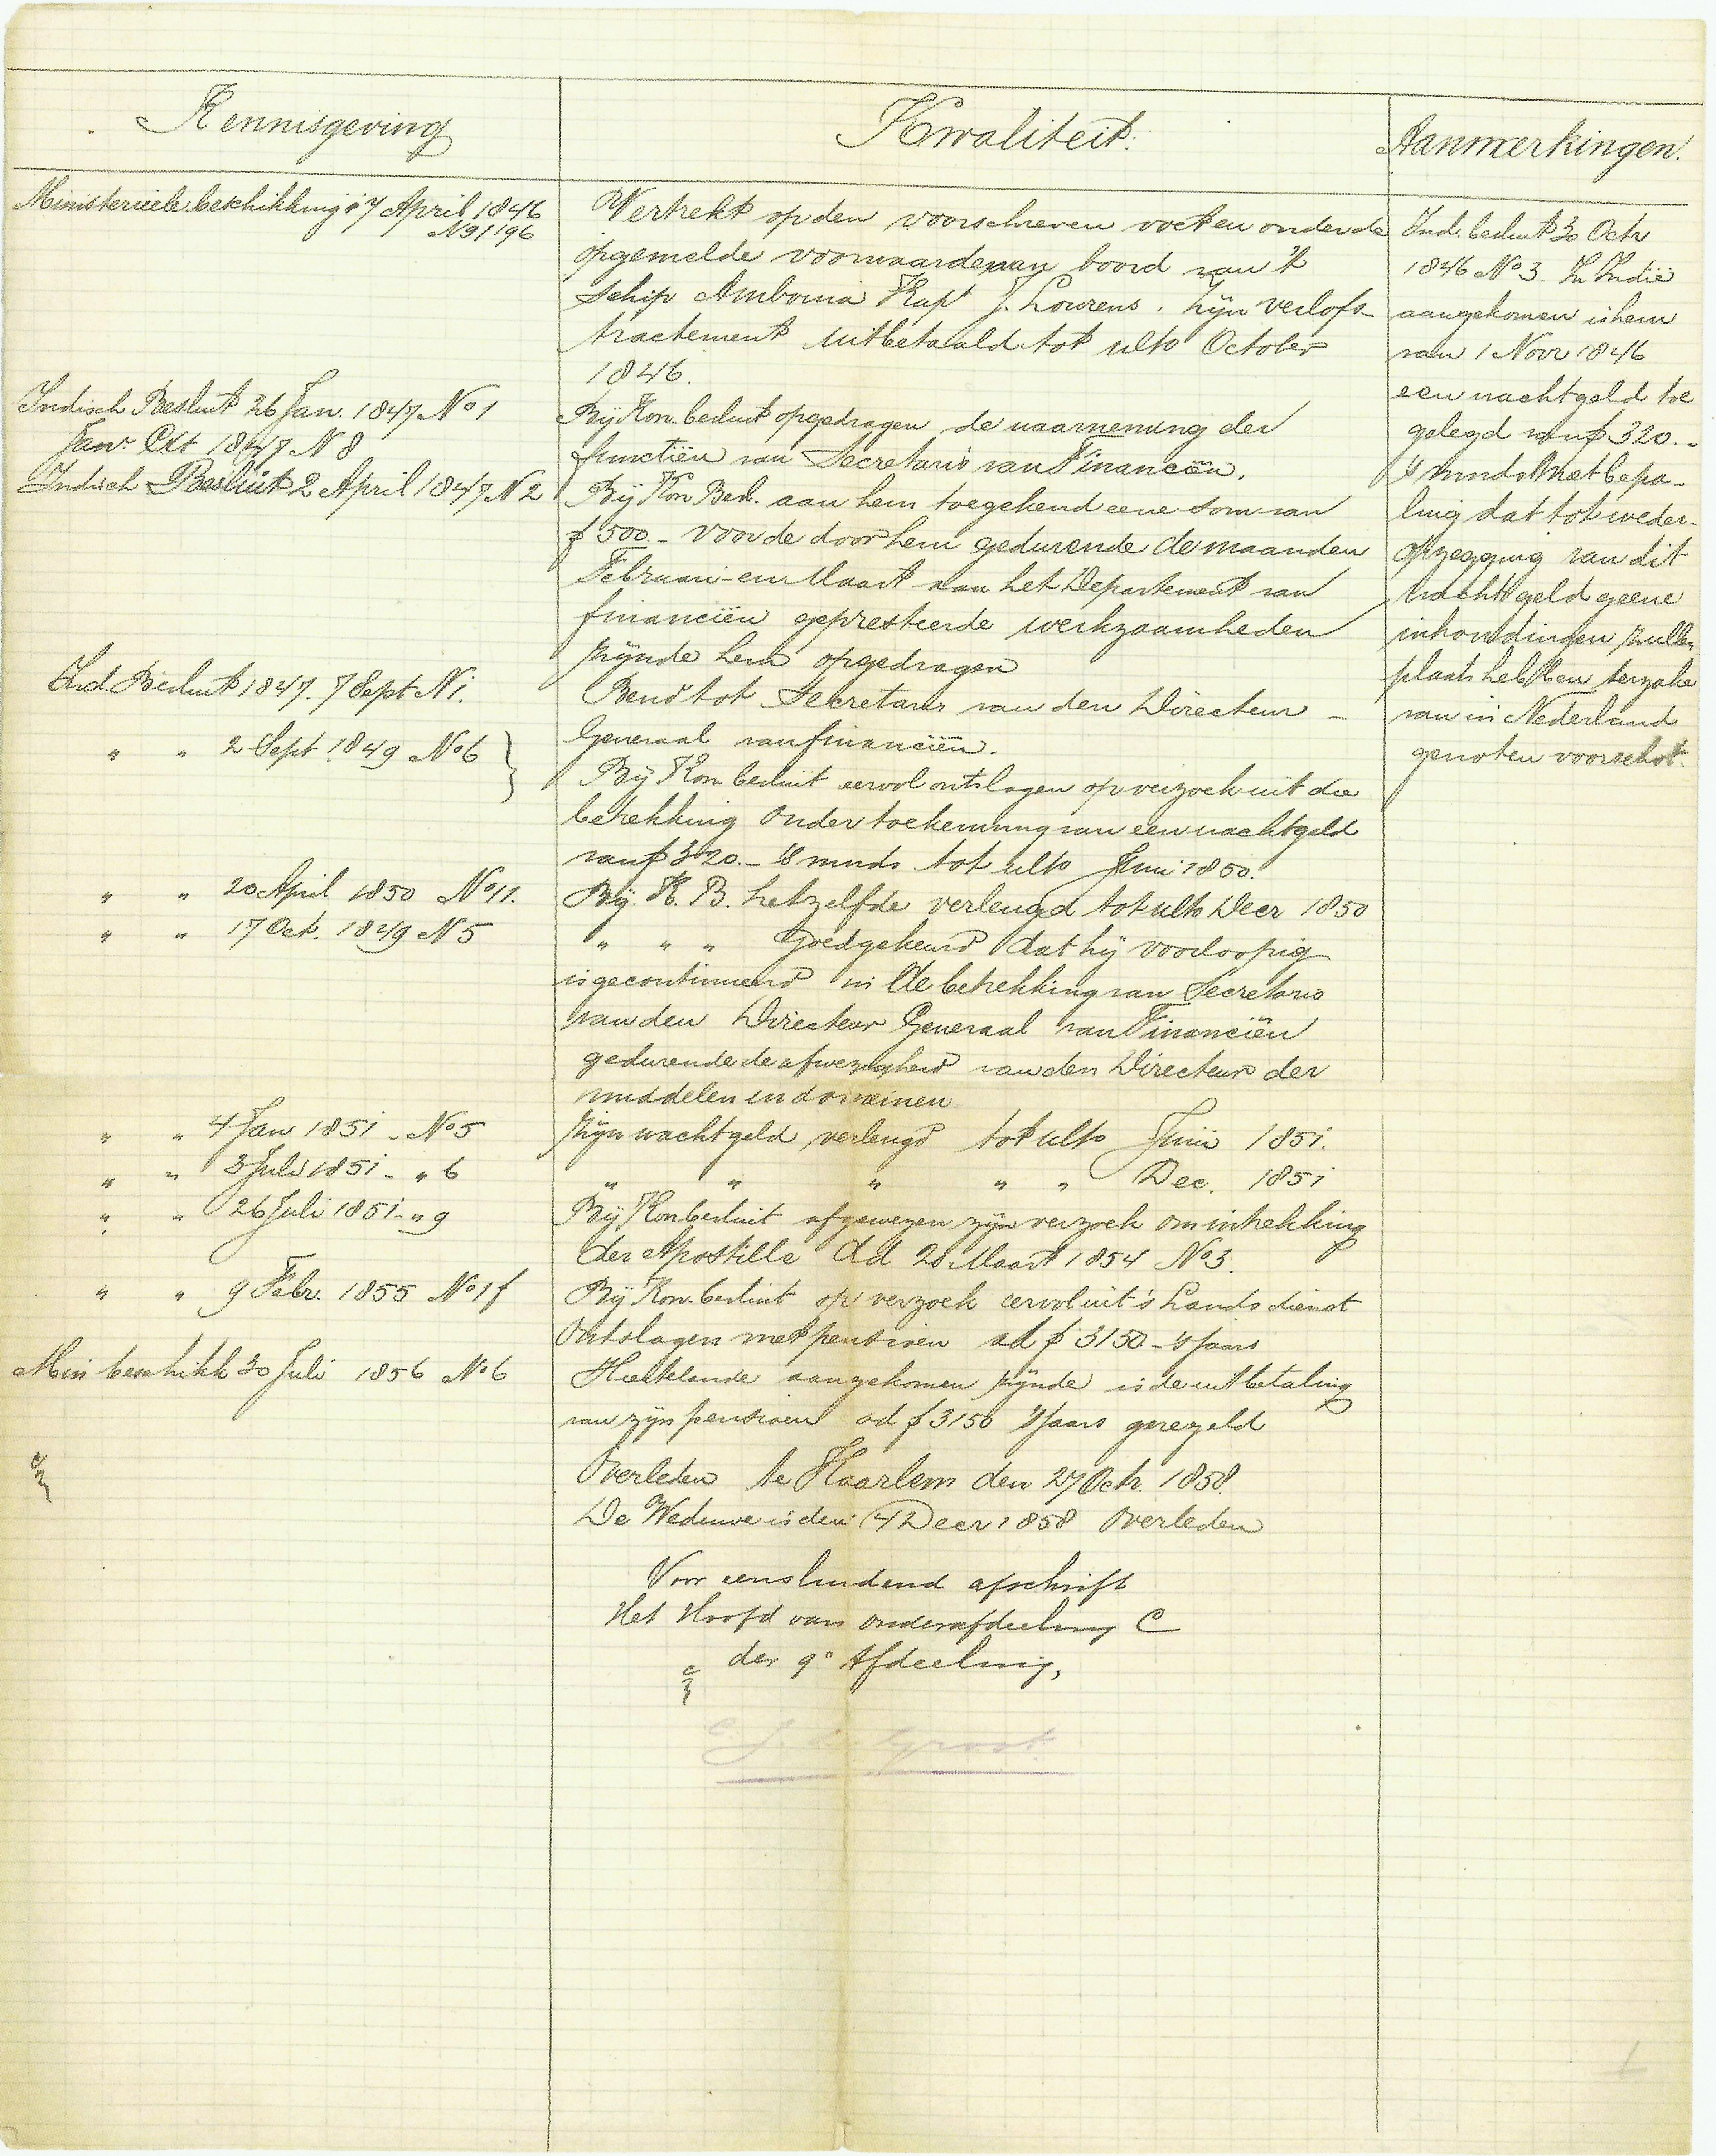 Kennisgeving
Kwaliteit.
Aanmerkingen.
Ministerieele beschikking 17 April 1846
No 1/196
Indisch Besluit 26 Jan. 1847 No 1
Janr. Ext 1847 N 8
Indisch Besluit 2 April 1847 N 2
Ind. Besluit 1847. 7 Sept N 1.
" " 2 Sept. 1849 No 6
" " 20 April 1850 No 11.
" " 17 Oct. 1849 N 5
" " 4 Jan 1851 - No 5
" " 3 Juli 1851 - " 6
" " 26 Juli 1851 - " 9
" " 9 Febr. 1855 No 1 f
Min beschikk 30 Juli 1856 No 6
Vertrekt op den voorschreven voet en onder de
opgemelde voorwaarden aan boord van 't
schip Ambonia Kapt J. Lourens. Zijn verlofs-
tractement uitbetaald tot ulto October
1846.
Bij Kon. besluit opgedragen de waarneming der
functiën van Secretaris van Financiën.
Bij Kon Besl. aan hem toegekend eene som van
ƒ 500.- voor de door hem gedurende de maanden
Februari en Maart aan het Departement van
financiën gepresteerde werkzaamheden
zijnde hem opgedragen
Bend tot Secretaris van den Directeur -
Generaal van financiën.
Bij Kon. besluit eervol ontslagen op verzoek uit die
betrekking onder toekenning van een wachtgeld
van ƒ 320.- 's mnds tot ulto Juni 1850.
Bij. K. B. hetzelfde verlengd tot ulto Decr 1850
" " " Goedgekeurd dat hij voorloopig
is gecontinueerd in de betrekking van Secretaris
van den Directeur Generaal van Financiën
gedurende de afwezigheid van den Directeur der
middelen en domeinen
Zijn wachtgeld verlengd tot ulto Junii 1851.
" " " " " Dec. 1851
Bij Kon besluit afgewezen zijn verzoek om intrekking
der Apostille dd 20 Maart 1854 No 3.
Bij Kon. besluit op verzoek eervol uit 's Lands dienst
ontslagen met pensioen ad ƒ 3150.- 's jaars
Hier te lande aangekomen zijnde is de uitbetaling
van zijn pensioen ad ƒ 3150 's jaars geregeld
Overleden te Haarlem den 27 Octr. 1858.
De Weduwe is den 4 Decr 1858 overleden
Voor eensluidend afschrift
Het Hoofd van onderafdeeling C
der 9e Afdeeling,
Groot.
Ind. besluit 30 Octr
1846 No 3. In Indië
aangekomen is hem
van 1 Novr 1846
een wachtgeld toe
gelegd van ƒ 320.-
's mnds met bepa-
ling dat tot weder-
opzegging van dit
wachtgeld geene
inhoudingen zullen
plaats hebben terzake
van in Nederland
genoten voorschot.